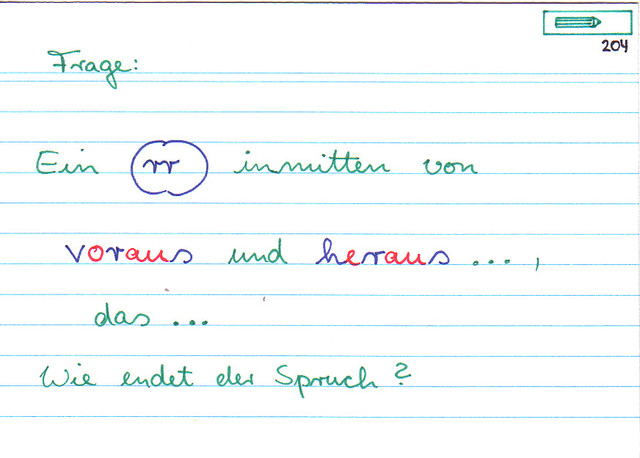 204
Frage:
Ein rr inmitten von
voraus und heraus ...,
das ...
Wie endet der Spruch?